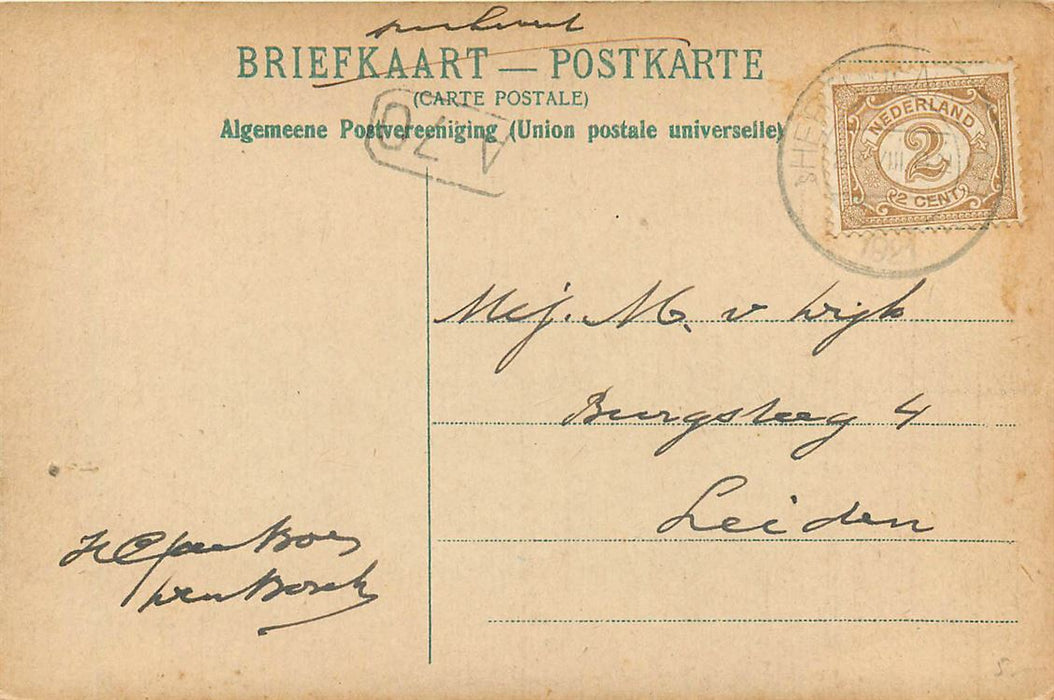 BRIEFKAART — POSTKARTE
(CARTE POSTALE)
Algemeene Postvereeniging (Union postale universelle)
A 70
NEDERLAND
2
2 CENT
1921
Mej. M. v Wijk
Burgsteeg 4
Leiden